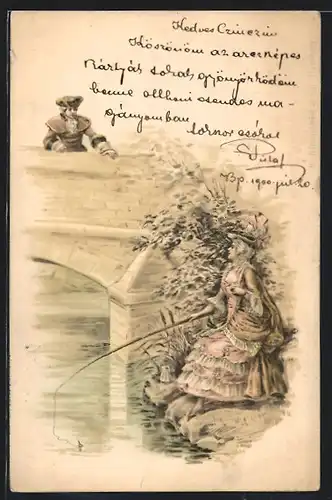 Kedves Czinczim
Köszönöm az arczképes
kártyás sokat gyönyörködöm
benne otthoni csendes ma-
gányomban
sokszor csókol
Bp. 1900. júl. 20.